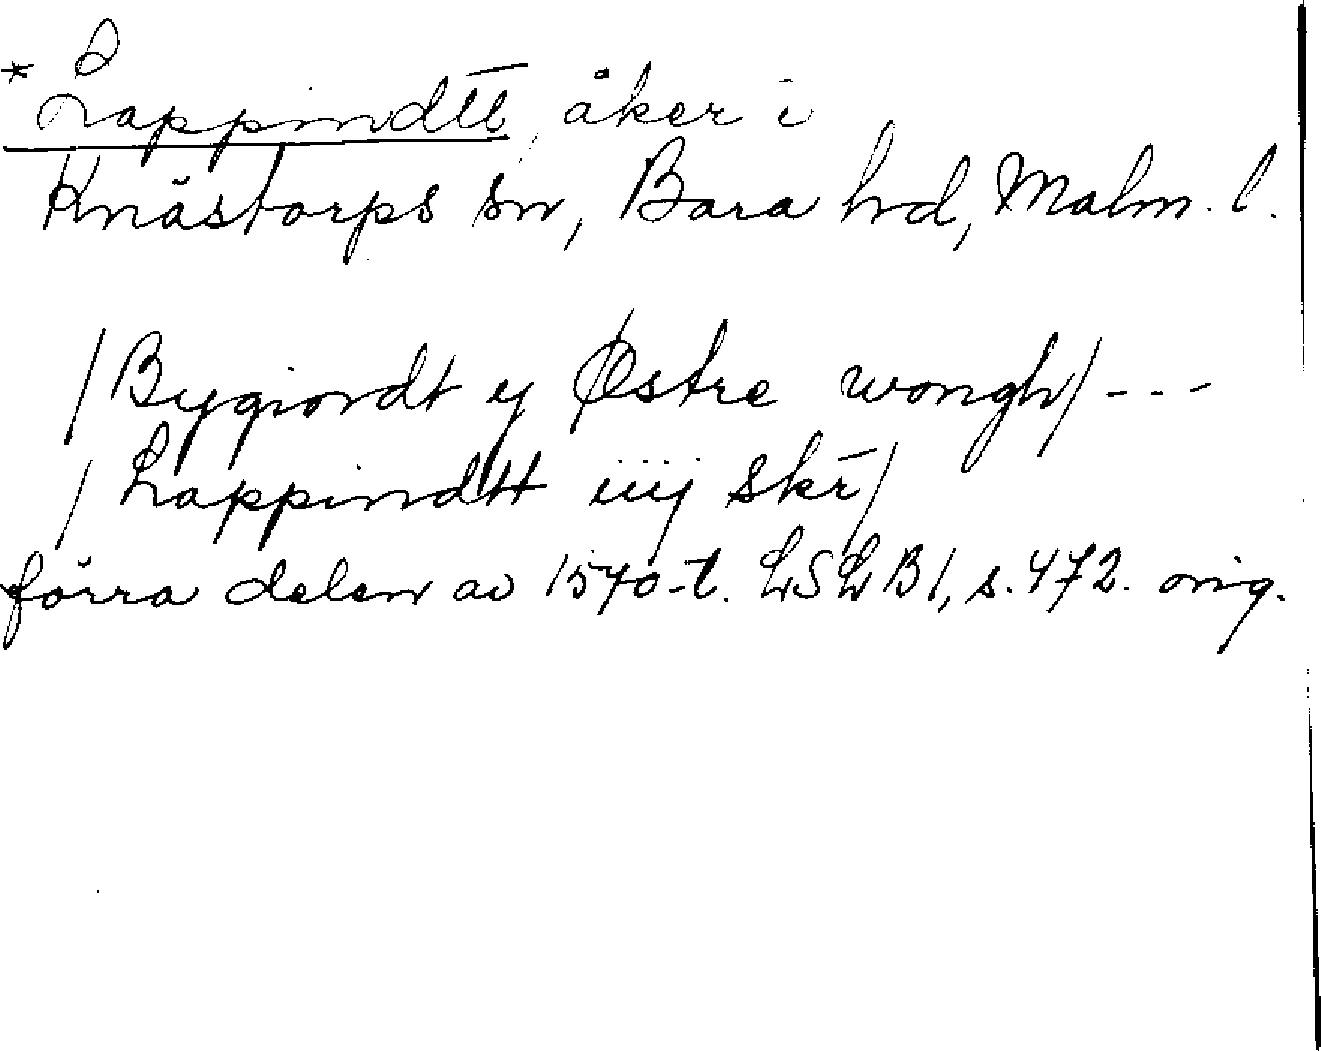 *Lappindtt, åker i
Knästorps sn, Bara hd, Malm. l.
/Bygiordt y Østre wongh/ ---
/Lappindtt iiij skr/
förra delen av 1570-t. LSLB1, s. 472. orig.